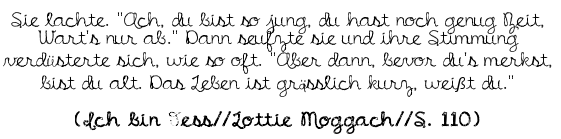 Sie lachte. "Ach, du bist so jung, du hast noch genug Zeit,
Wart's nur ab." Dann seufzte sie und ihre Stimmung
verdüsterte sich, wie so oft. "Aber dann, bevor du's merkst,
bist du alt. Das Leben ist grässlich kurz, weißt du."
(Ich bin Tess//Lottie Moggach//S. 110)